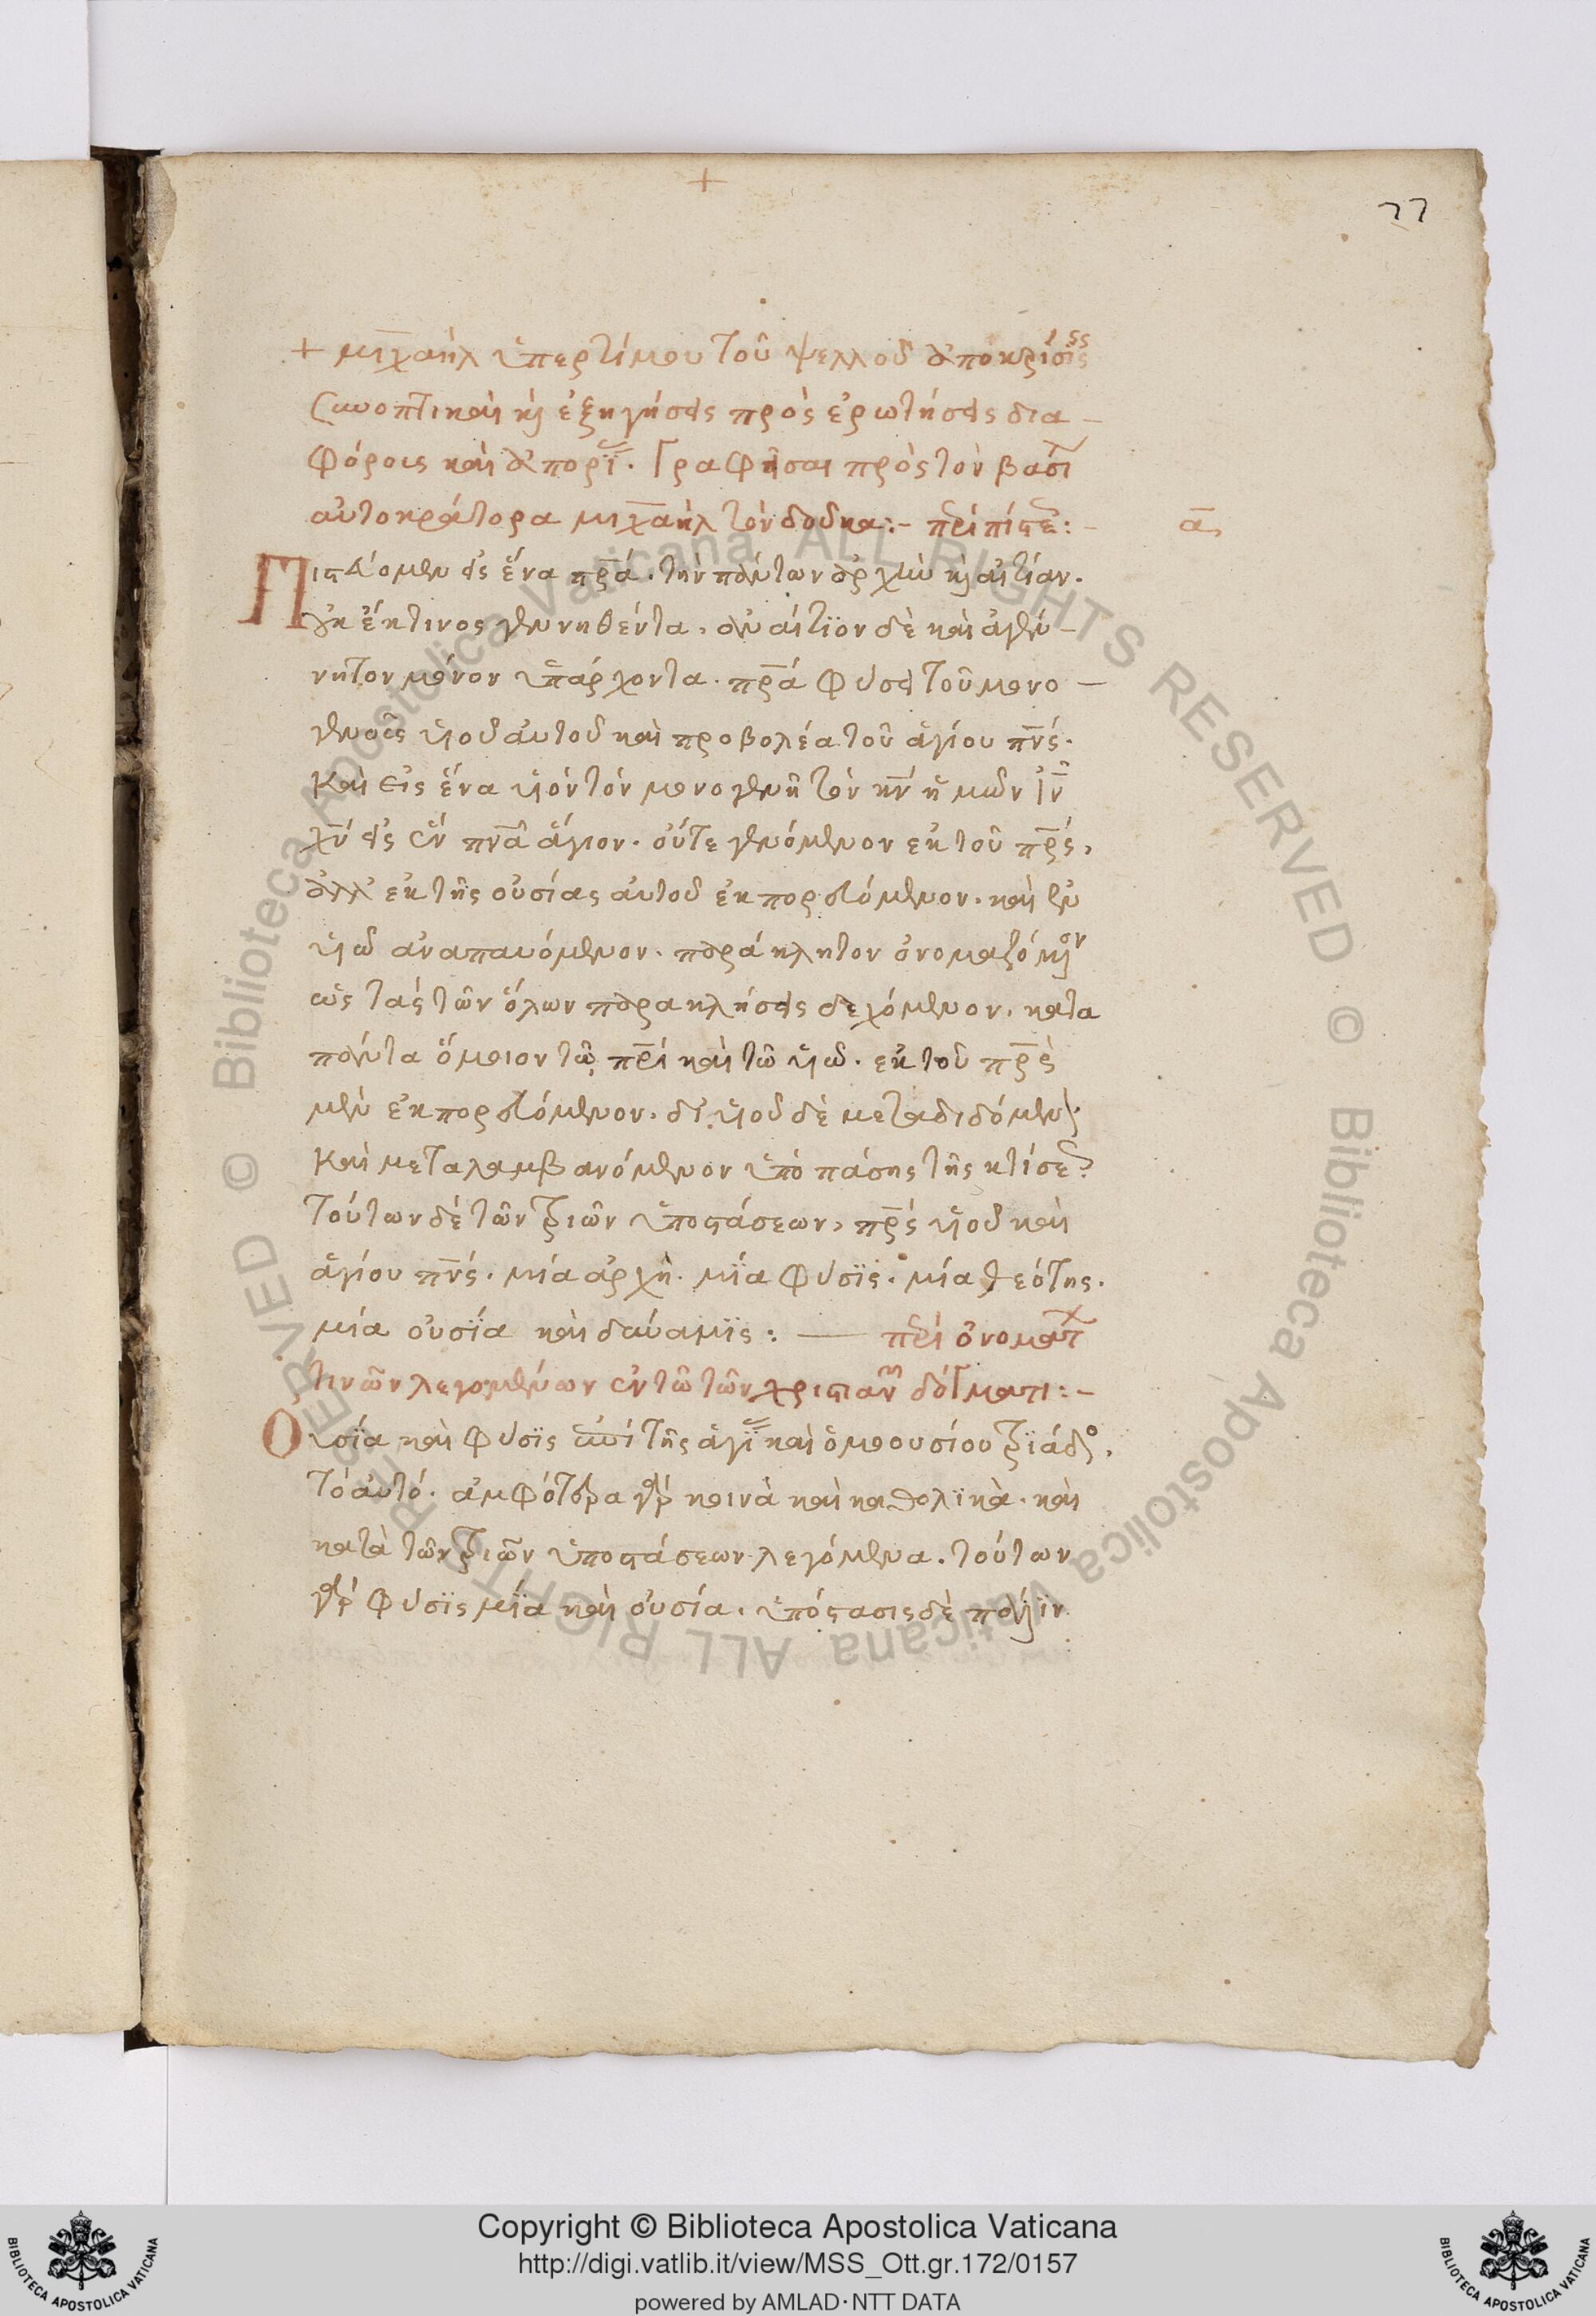 +
77
+ μιχαὴλ ὑπερτίμου τοῦ ψελλοῦ ἀποκρίσεις
συνοπτικαὶ κ̀ ἐξηγήσεις πρὸς ἐρωτήσεις δια-
φόροις καὶ ἀπορί. Γραφῆσαι πρὸς τὸν βασι
αὐτοκράτορα μιχαὴλ τὸν δοῦκα:- περὶ πίστε:-
α,
Πιστεύομεν εἰς ἕνα πρ̅α. τὴν πάντων ἀρχὴν κ̀ αἰτίαν.
οὐκ ἔκ τινος γεννηθέντα, ἀναίτϊον δὲ καὶ ἀγέν-
νητον μόνον ὑπάρχοντα. πρ̅α φύσει τοῦ μονο-
γενοῦς υἱοῦ αὐτοῦ καὶ προβολέα τοῦ ἁγίου πν̅ς.
καὶ εἰς ἕνα υἱὸν τὸν μονογενῆ τὸν κν̅ ἡμῶν ἰν̅
χν̅ εἰς ἓν πνα̅ ἅγιον. οὔτε γενόμενον ἐκ τοῦ πρ̅ς,
ἀλλ' ἐκ τῆς οὐσίας αὐτοῦ ἐκπορευόμενον. καὶ ἐν
υἱῶ ἀναπαυόμενον. παράκλητον ὀνομαζόμενον
ὡς τὰς τῶν ὅλων παρακλήσεις δεχόμενον. κατα
πάντα ὅμοιον τῶ πρ̅ι καὶ τῶ υἱῶ. ἐκ τοῦ πρ̅ς
μὲν ἐκπορευόμενον. δι' υἱοῦ δὲ μεταδιδόμεν
καὶ μεταλαμβανόμενον ὑπὸ πάσης τῆς κτίσε
τούτων δὲ τῶν τριῶν ὑποστάσεων, πρ̅ς υἱοῦ καὶ
ἁγίου πν̅ς. μία ἀρχὴ. μΐα φύσϊς. μία θεότης.
μία οὐσΐα καὶ δύναμϊς: — περὶ ὀνομάτ
τινῶν λεγομένων ἐν τῶ τῶν χριστιαν δόγματι:-
Οὐσΐα καὶ φύσϊς ἐπὶ τῆς ἁγΐ καὶ ὁμοουσίου τρϊάδος.
τὸ αὐτό. ἀμφότερα γὰρ κοινὰ καὶ καθολϊκὰ. καὶ
κατὰ τῶν τριῶν ὑποστάσεων λεγόμενα. τούτων
γὰρ φύσϊς μΐα καὶ οὐσία. ὑπόστασις δὲ πάλϊν
Copyright © Biblioteca Apostolica Vaticana
http://digi.vatlib.it/view/MSS_Ott.gr.172/0157
powered by AMLAD·NTT DATA
BIBLIOTECA APOSTOLICA VATICANA
BIBLIOTECA APOSTOLICA VATICANA
© Biblioteca Apostolica Vaticana ALL RIGHTS RESERVED © Biblioteca Apostolica Vaticana ALL RIGHTS RESERVED